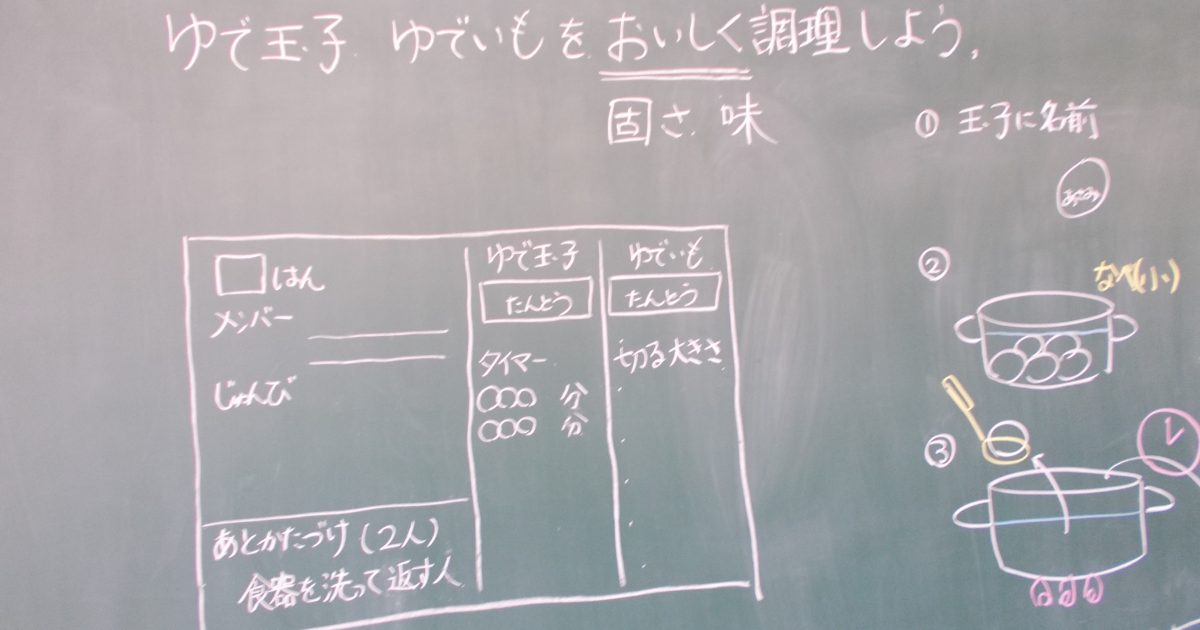 ゆで玉子 ゆでいもをおいしく調理しよう。
固さ 味
□はん
メンバー
じゅんび
あとかたづけ(2人)
食器を洗って返す人
ゆで玉子
たんとう
タイマー
○○○ 分
○○○ 分
ゆでいも
たんとう
切る大きさ
① 玉子に名前
②
なべ(小)
③